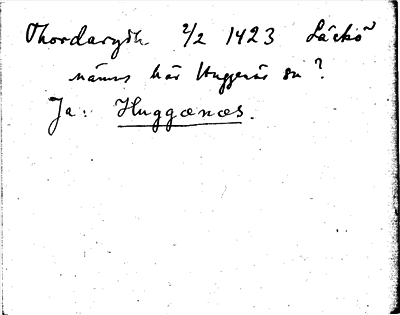 Thordarydh 2/2 1423 Läckö
nämns här Huggenäs sn?
Ja: Huggænæs.